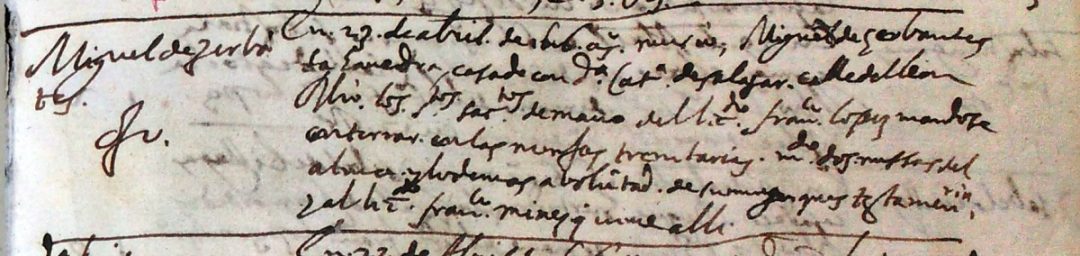 Miguel de zerban
tes.
En 23. de abril. de 1616. as. murio, Miguel de zerbantes
sabedra, casado con Dª. Catª. de salazar. calle del leon
Rbio. los stos sactos de mano del lizdo. franco. lopez mandose
enterrar. en las monjas trenitarias. mdo. dos missas del
alma. y lo demas a boluntad. de su muger que es testamentra,
y al lizdo. franco. minez q vive alli
En 23 de Abril